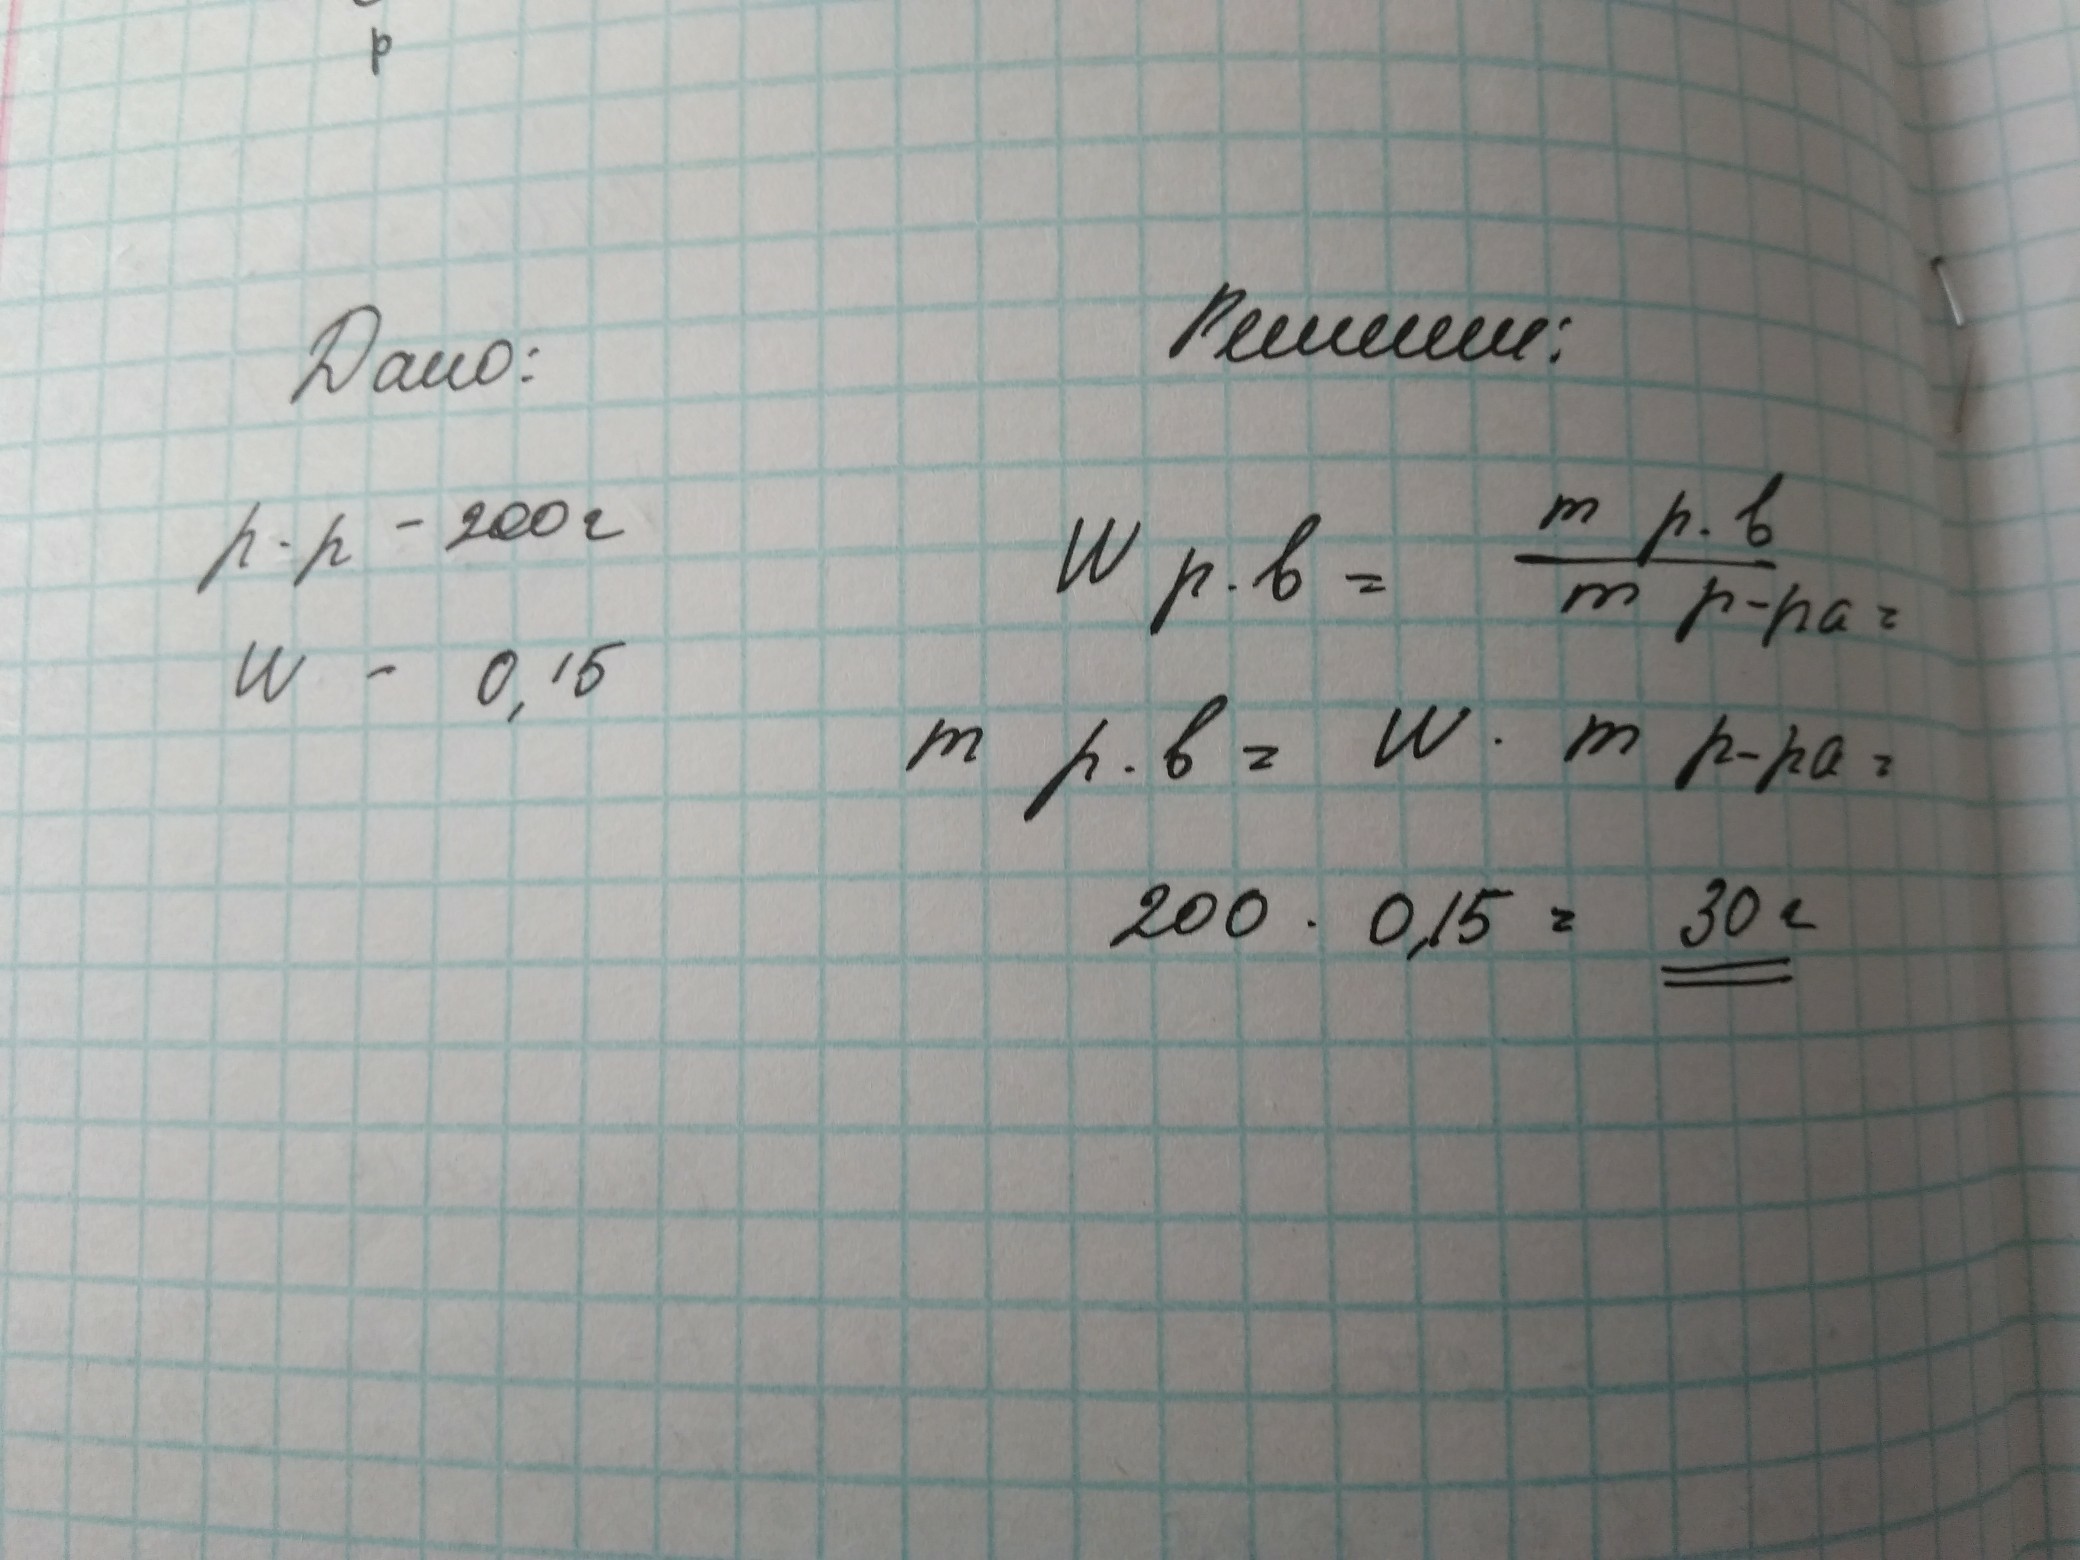 р
Дано:
р-р - 200г
W - 0,15
Решение:
W р.в = m р.в / m р-ра =
m р.в = W · m р-ра =
200 · 0,15 = 30г